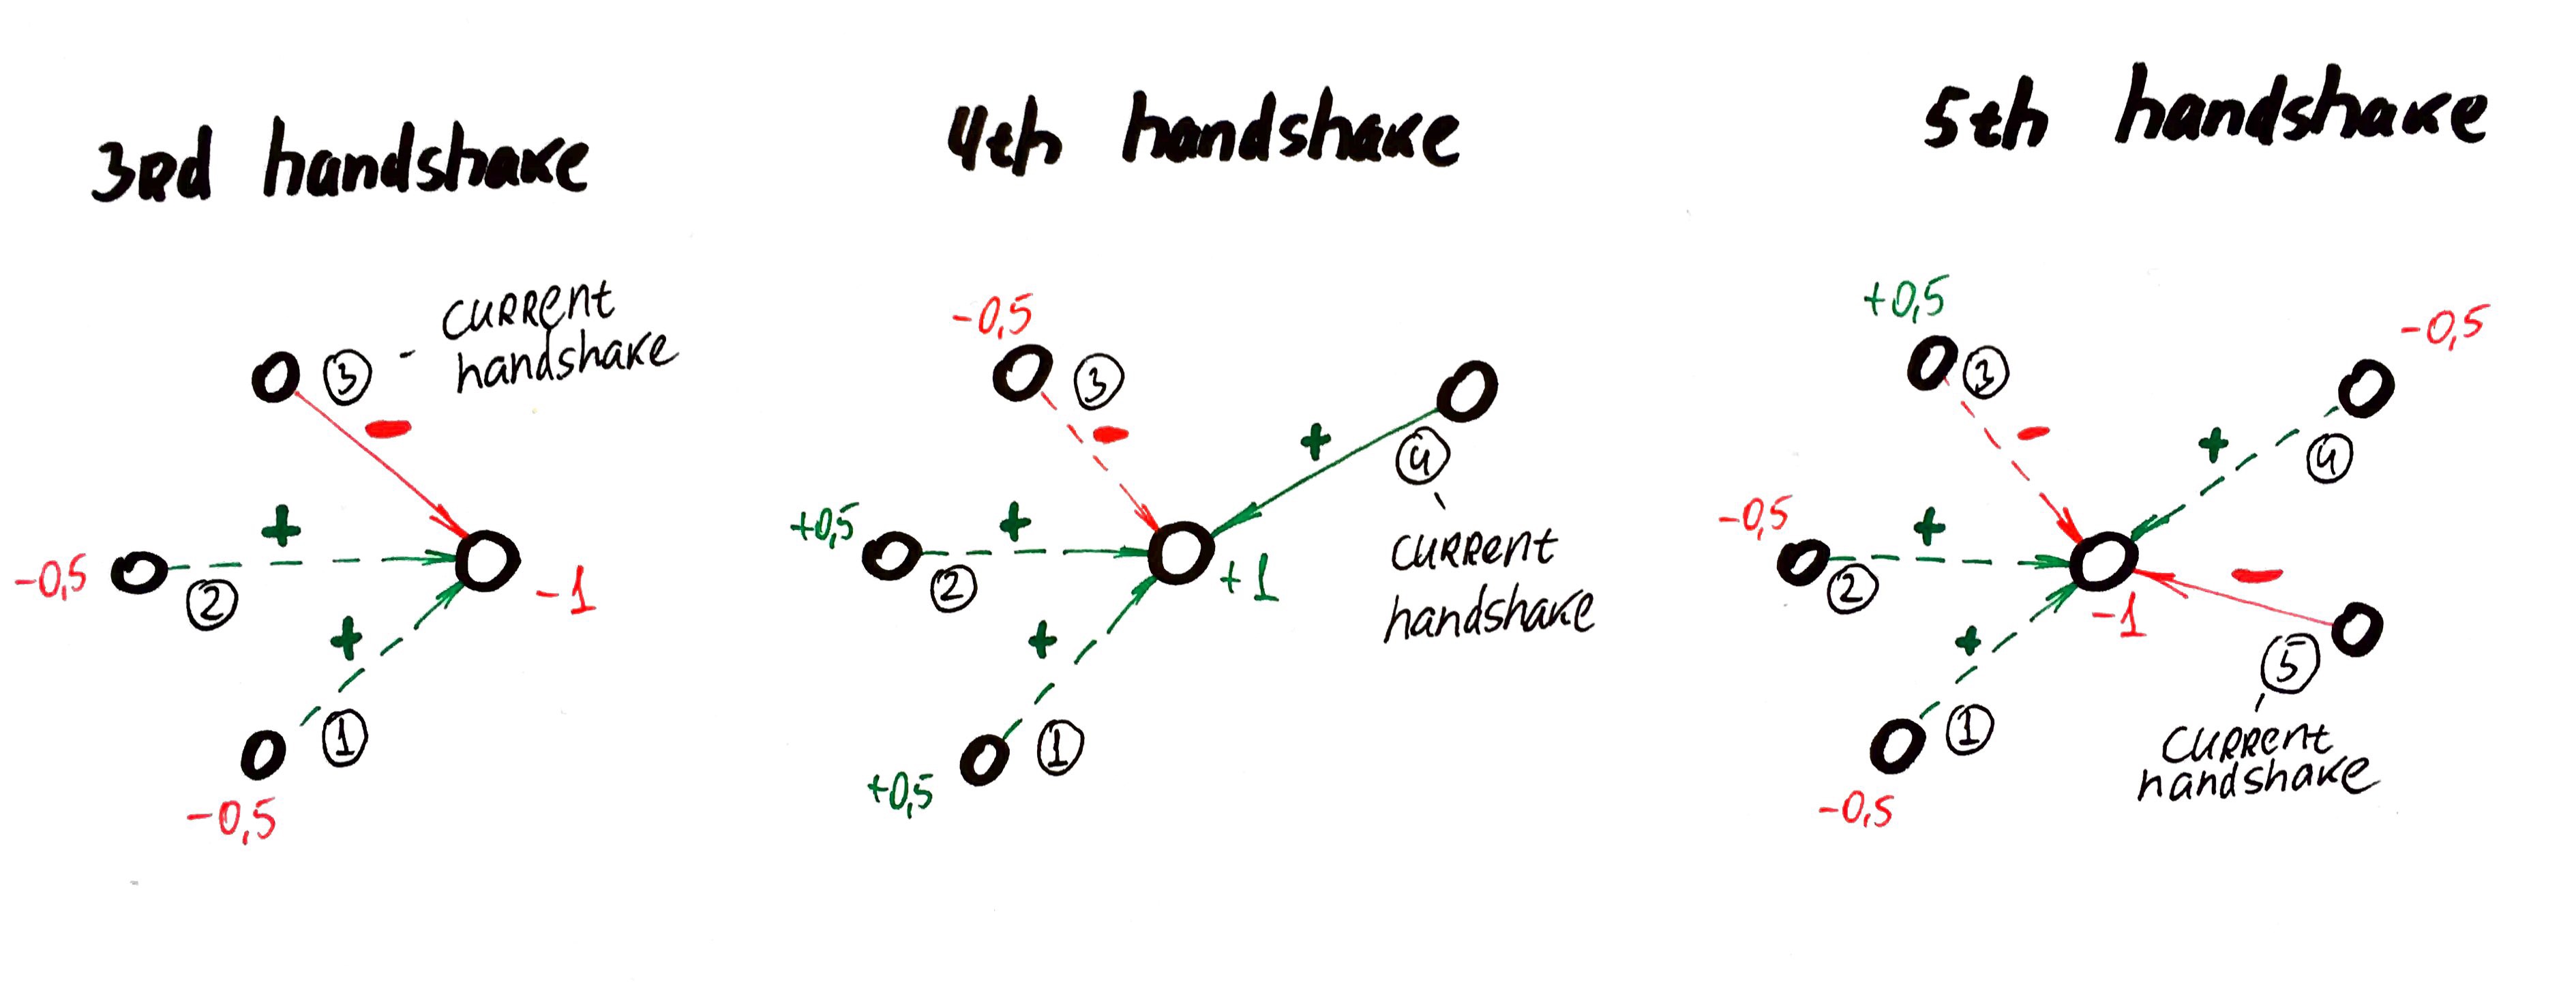 3rd handshake
current
handshake
3
-
+
-0,5
2
-1
+
1
-0,5
4th handshake
-0,5
3
-
+
4
+0,5
+
2
+1
current
handshake
+
1
+0,5
5th handshake
+0,5
3
-0,5
-
+
4
-0,5
+
2
-
-1
+
5
1
current
handshake
-0,5